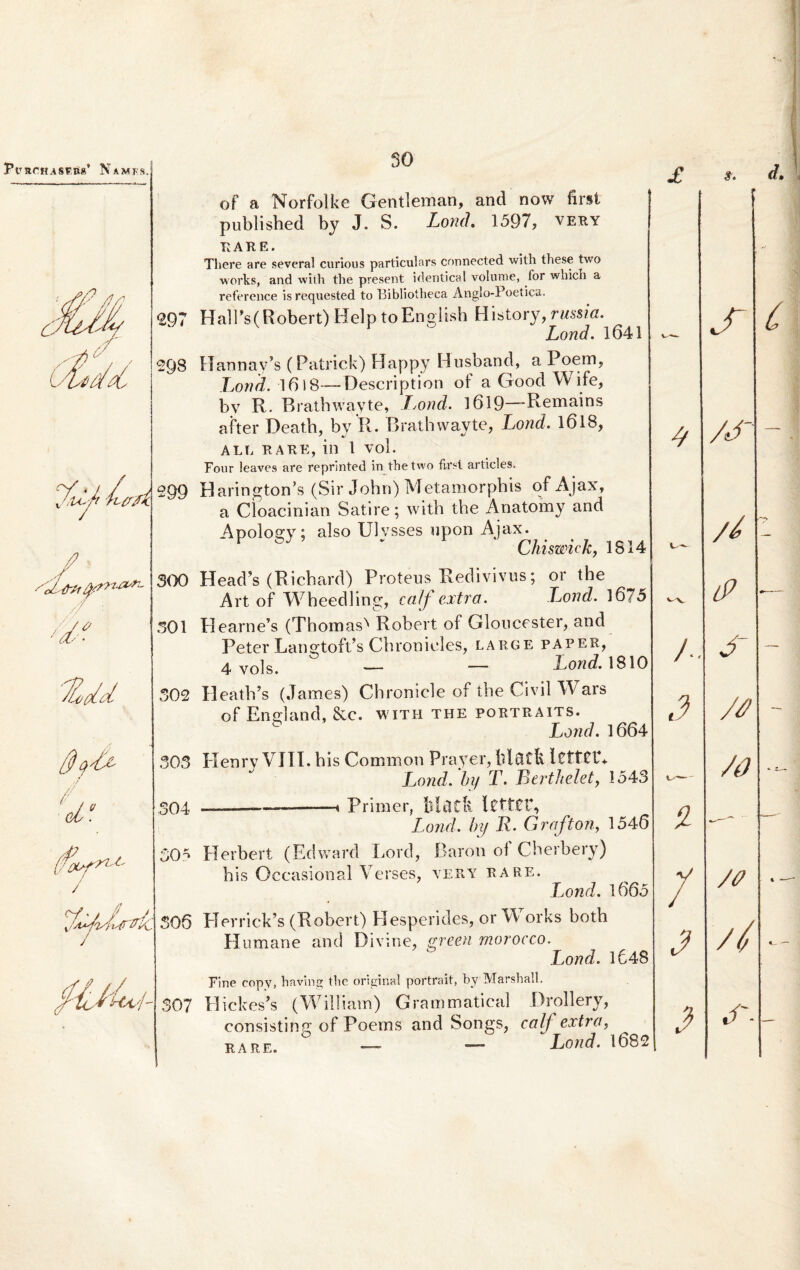 30
Purchasers' Names.
£ s. d.
of a Norfolke Gentleman, and now first
published by J. S. Lond. 1597, VERY
RARE.
There are several curious particulars connected with these two
works, and with the present identical volume, for which a
reference is requested to Bibliotheca Anglo-Poetica.
297 Hall's (Robert) Help to English History, russia.
Lond. 1641
5 6
298 Hannay's (Patrick) Happy Husband, a Poem,
Todd
Lond. 1618—Description of a Good Wife,
by R. Brathwayte, Lond. 1619—Remains
after Death, by R. Brathwayte, Lond. 1618,
ALL RARE, in 1 vol.
4 15 —
Four leaves are reprinted in the two first articles.
299 Harington's (Sir John) Metamorphis of Ajax,
a Cloacinian Satire; with the Anatomy and
Apology; also Ulysses upon Ajax.
Chiswick, 1814
16 —
300 Head's (Richard) Proteus Redivivus; or the
Art of Wheedling, calf extra. Lond. 1675
301 Hearne's (Thomas) Robert of Gloucester, and
do.
Peter Langtoft's Chronicles, LARGE PAPER,
4 vols. — — Lond. 1810
1 5 —
302 Heath's (James) Chronicle of the Civil Wars
Todd
of England, &c. WITH THE PORTRAITS.
Lond. 1664
3 10 —
303 Henry VIII. his Common Prayer, black letter.
Lond. by T. Berthelet, 1543
10 —
304 ———— Primer, black letter,
do.
Lond. by R. Grafton, 1546
2 — —
305 Herbert (Edward Lord, Baron of Cherbery)
Payne
his Occasional Verses, VERY RARE.
Lond. 1665
7 10 —
306 Herrick's (Robert) Hesperides, or Works both
Humane and Divine, green morocco.
Lond. 1648
3 16 —
Fine copy, having the original portrait, by Marshall.
307 Hickes's (William) Grammatical Drollery,
consisting of Poems and Songs, calf extra,
RARE. — — Lond. 1682
3 5 —